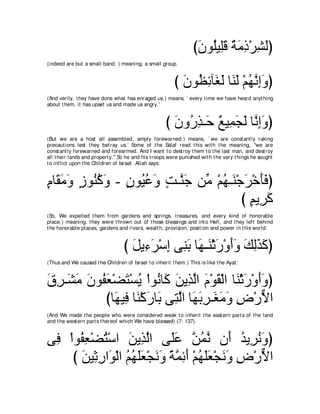 (لَشِرْذِمَةٌ قَلِيلُونَ)
(indeed are but a small band. ) meaning, a small group.
(وَإِنَّهُمْ لَنَا لَغَآئِظُونَ )
(And verily, they have done what has enraged us.) means, `every time we have heard anything
about them, it has upset us and made us angry.'
(وَإِنَّا لَجَمِيعٌ حَـذِرُونَ )
(But we are a host all assembled, amply forewarned.) means, `we are constantly taking
precautions lest they betray us.' Some of the Salaf read this with the meaning, "we are
constantly forewarned and forearmed. And I want to destroy them to the last man, and destroy
all their lands and property.'' So he and his troops were punished with the very things he sought
to inflict upon the Children of Israel. Allah says:
(فَأَخْرَجْنَـهُمْ مِّن جَنَّـتٍ وَعُيُونٍ - وَكُنُوزٍ وَمَقَامٍ
كَرِيمٍ )
(So, We expelled them from gardens and springs, treasures, and every kind of honorable
place.) meaning, they were thrown out of those blessings and into Hell, and they left behind
the honorable places, gardens and rivers, wealth, provision, position and power in this world:
(كَذَلِكَ وَأَوْرَثْنَـهَا بَنِى إِسْرَءِيلَ )
(Thus and We caused the Children of Israel to inherit them.) This is like the Ayat:
(وَأَوْرَثْنَا الْقَوْمَ الَّذِينَ كَانُواْ يُسْتَضْعَفُونَ مَشَـرِقَ
الاٌّرْضِ وَمَغَـرِبَهَا الَّتِى بَارَكْنَا فِيهَا)
(And We made the people who were considered weak to inherit the eastern parts of the land
and the western parts thereof which We have blessed) (7: 137).
(وَنُرِيدُ أَن نَّمُنَّ عَلَى الَّذِينَ اسْتُضْعِفُواْ فِى
الاٌّرْضِ وَنَجْعَلَهُمْ أَئِمَّةً وَنَجْعَلَهُمُ الْوَارِثِينَ )